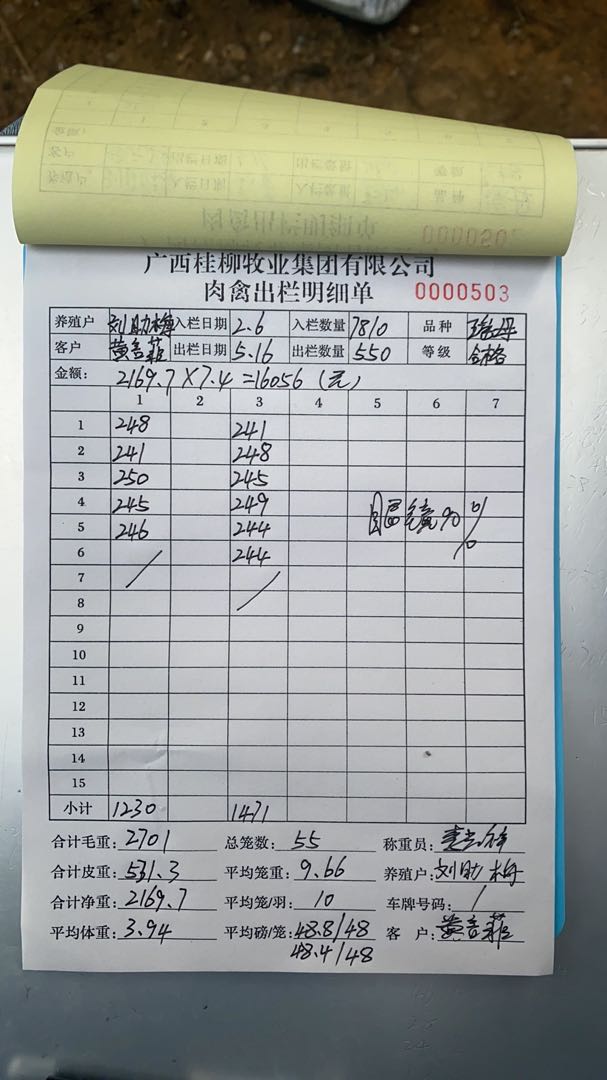 广西桂柳牧业集团有限公司
肉禽出栏明细单 0000503
养殖户 刘助梅 入栏日期 2.6 入栏数量 7810 品种
客户 黄彦菲 出栏日期 5.16 出栏数量 550 等级 合格
金额: 2169.7×7.4=16056(元)
1 2 3 4 5 6 7
1 248 241
2 241 248
3 250 245
4 245 249
5 246 244
6 244
7
8
9
10
11
12
13
14
15
小计 1230 1471
90%
合计毛重: 2701 总笼数: 55 称重员:
合计皮重: 531.3 平均笼重: 9.66 养殖户: 刘助梅
合计净重: 2169.7 平均笼/羽: 10 车牌号码: /
平均体重: 3.94 平均磅/笼: 48.8/48 客 户:
48.4/48